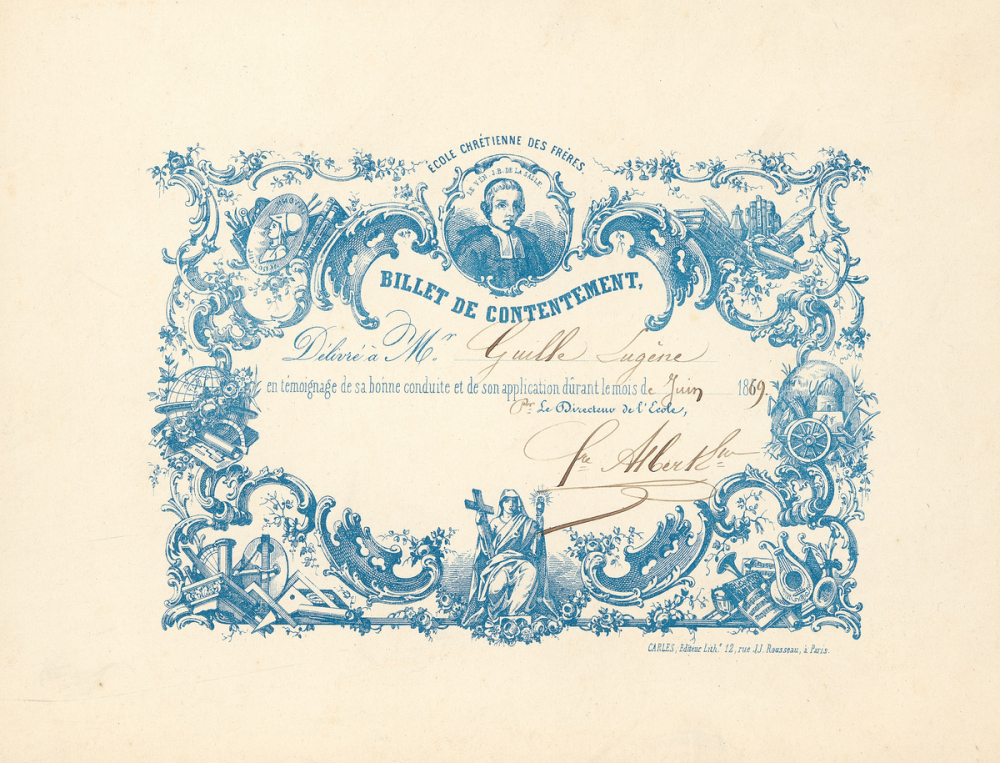 ÉCOLE CHRÉTIENNE DES FRÈRES
LE VÉN. J.B. DE LA SALLE.
BILLET DE CONTENTEMENT,
Délivré à Mr. Guille Eugène
en témoignage de sa bonne conduite et de son application durant le mois de Juin 1869.
Pr. Le Directeur de l'École,
fre Albert
CARLES, Editeur Lith.e 12, rue J.J. Rousseau, à Paris.